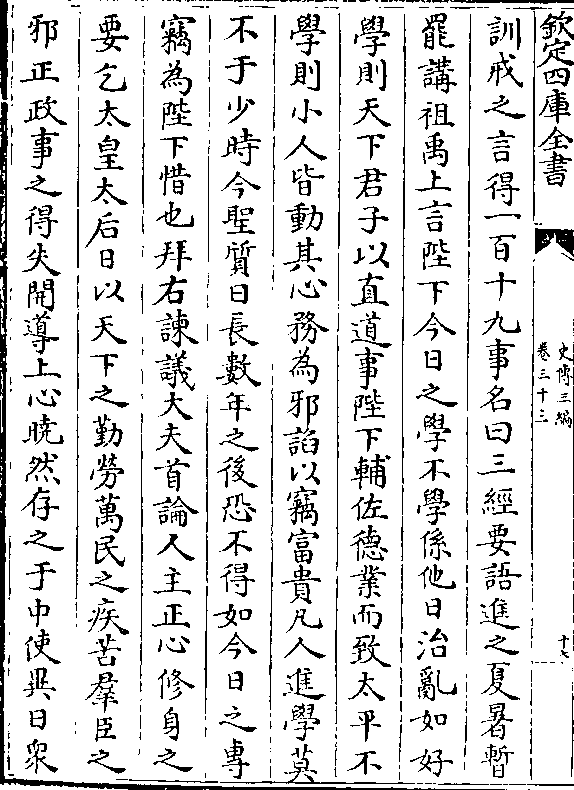 欽定四庫全書
史傳三編
卷三十三
十七
訓戒之言得一百十九事名曰三經要語進之夏暑暫
罷講祖禹上言陛下今日之學不學係他日治亂如好
學則天下君子以直道事陛下輔佐德業而致太平不
學則小人皆動其心務為邪諂以竊富貴凡人進學莫
不于少時今聖質日長數年之後恐不得如今日之專
竊為陛下惜也拜右諫議大夫首論人主正心修身之
要乞太皇太后日以天下之勤勞萬民之疾苦羣臣之
邪正政事之得失開導上心曉然存之于中使異日衆